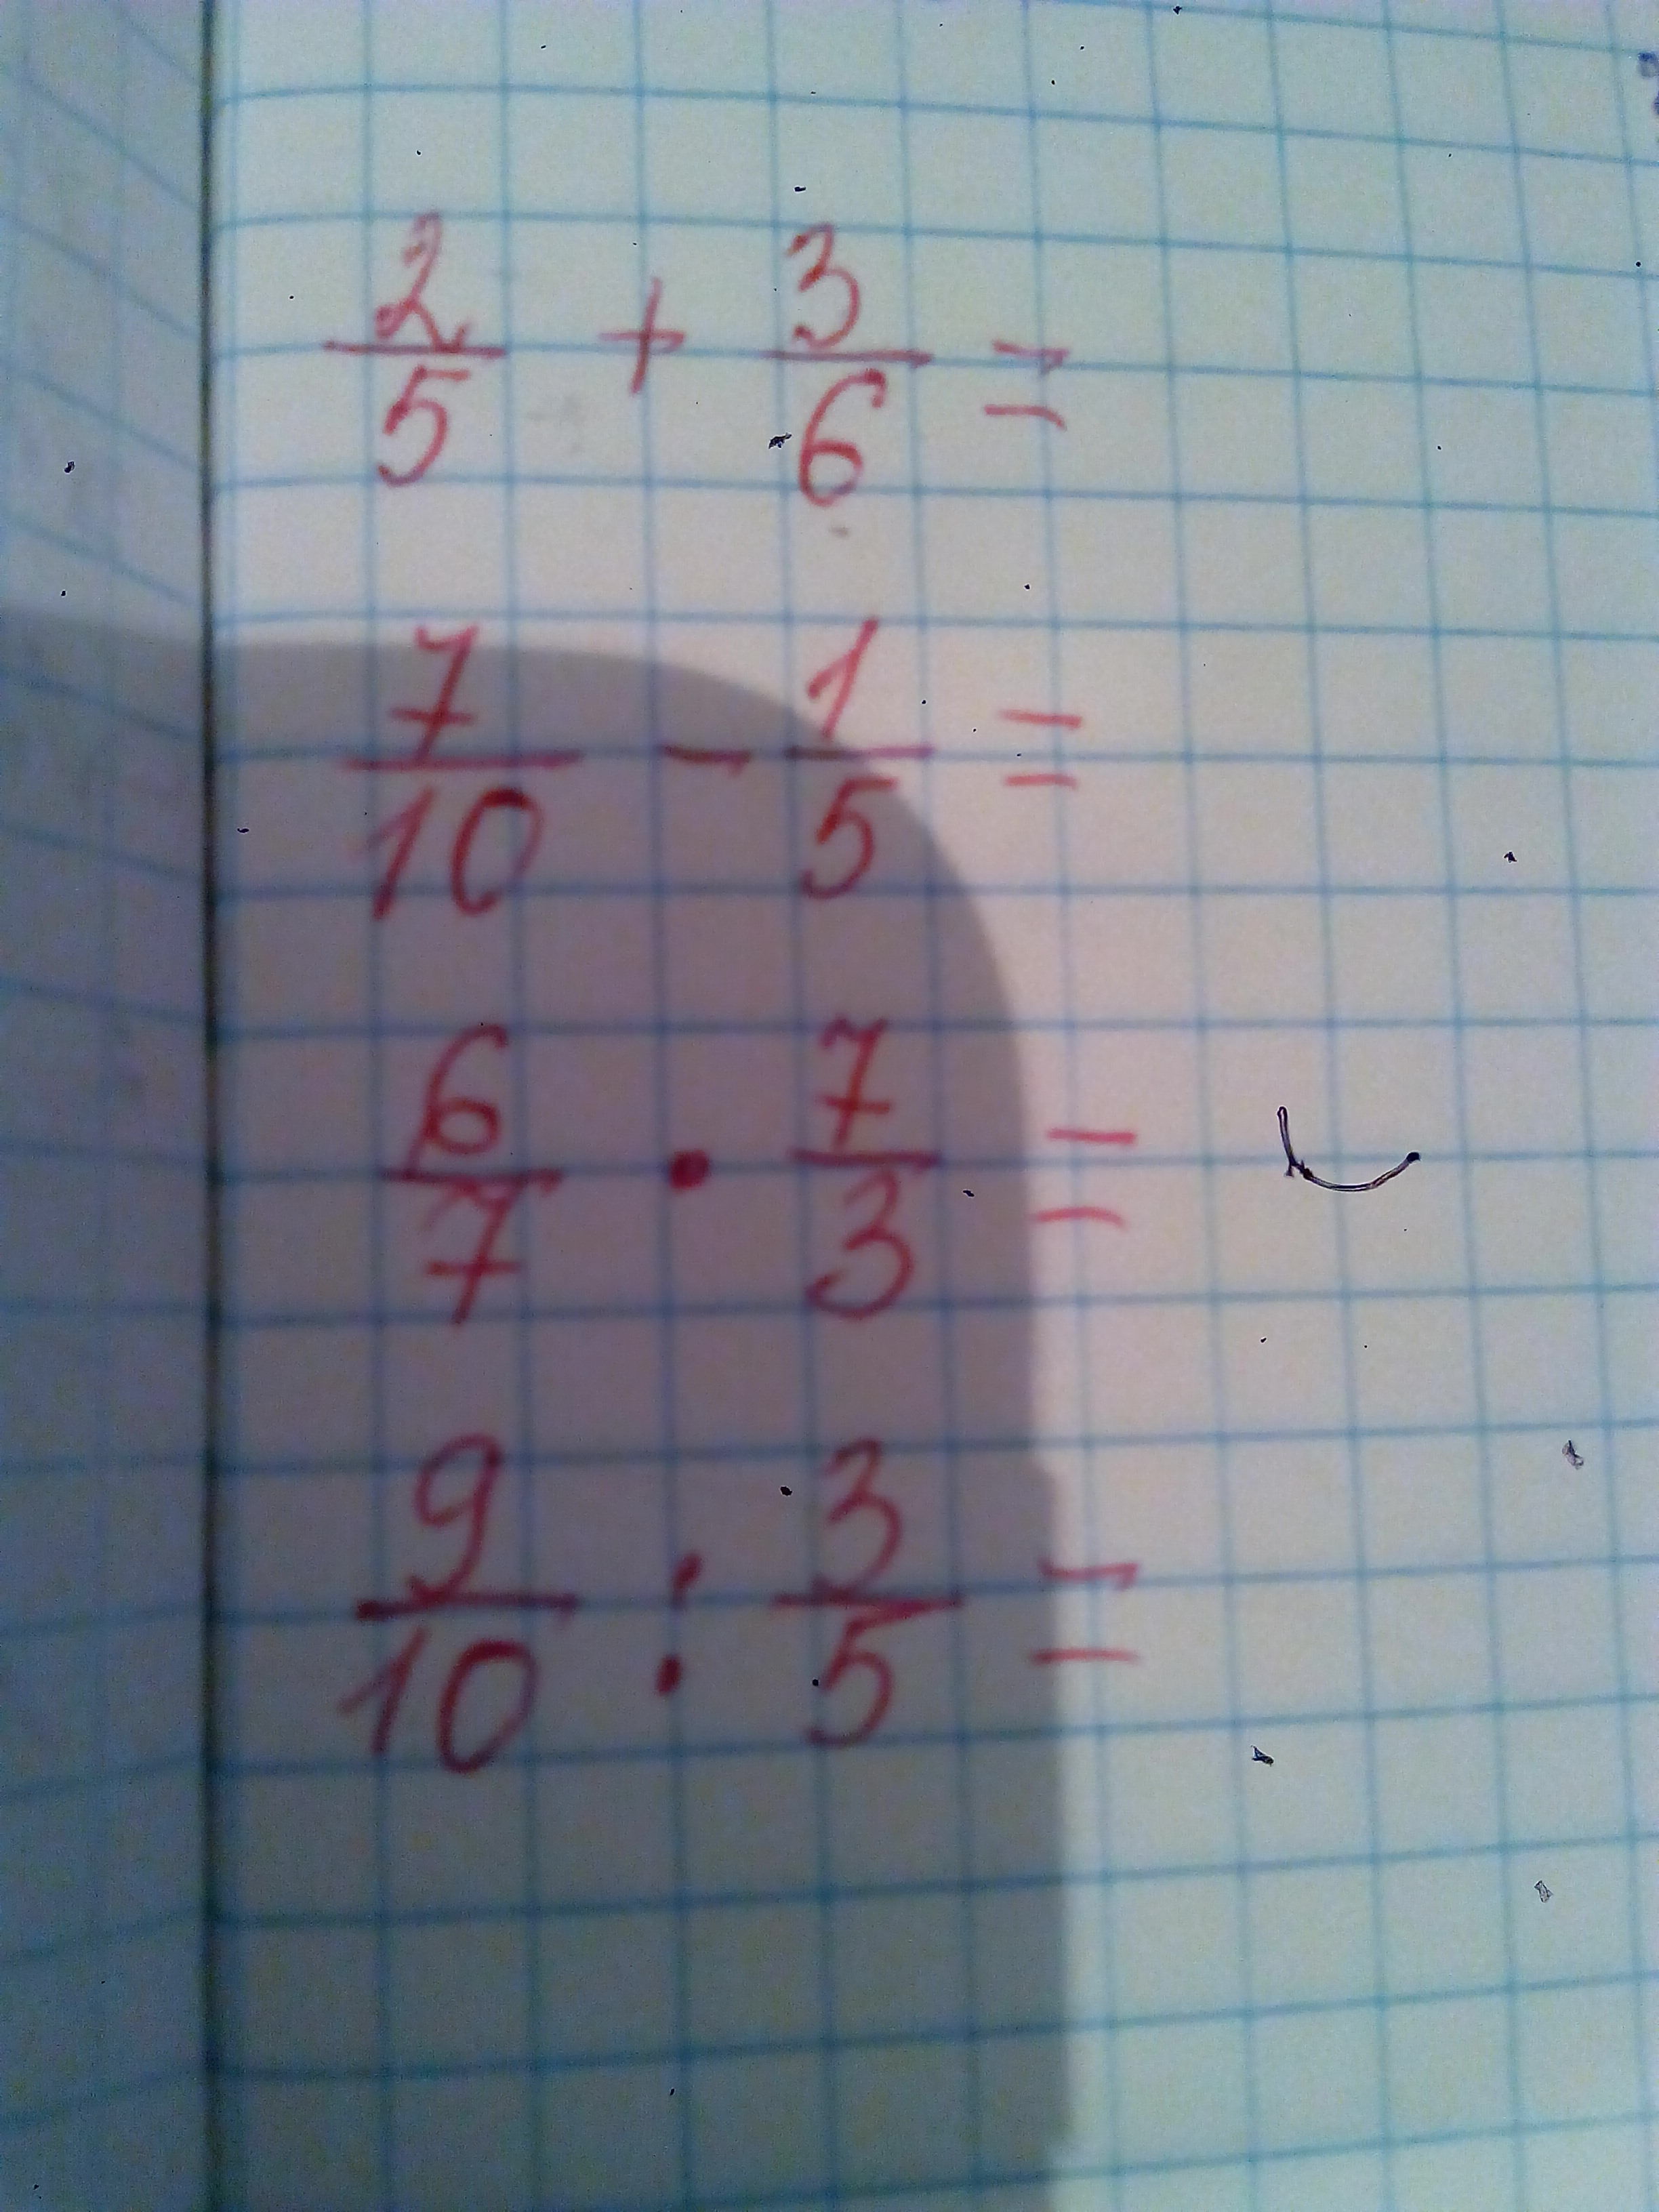 2/5 + 3/6 =
7/10 - 1/5 =
6/7 · 7/3 =
9/10 : 3/5 =